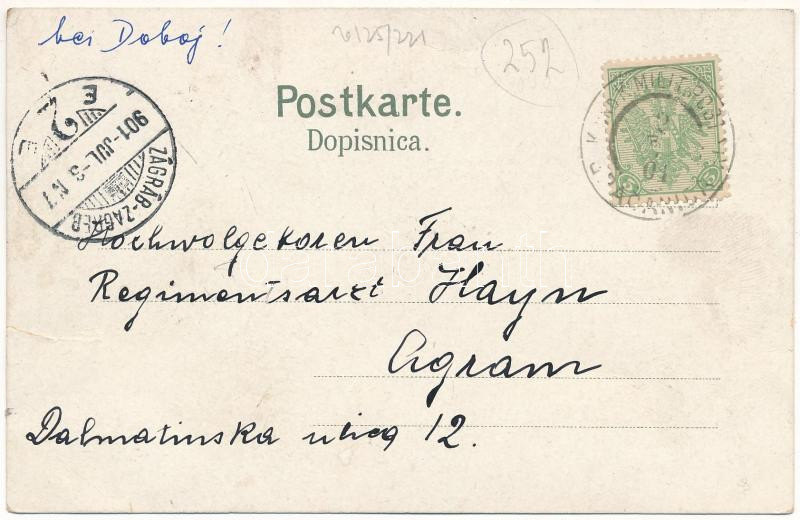 bei Doboj!
252
Postkarte.
Dopisnica.
ZÁGRÁB-ZAGREB
901-JUL.-3. N 1
E 2 E
K. u. K. MILIT. POST
5
Hochwolgeboren Frau
Regimentsarzt Hayn
Agram
Dalmatinska ulica 12.